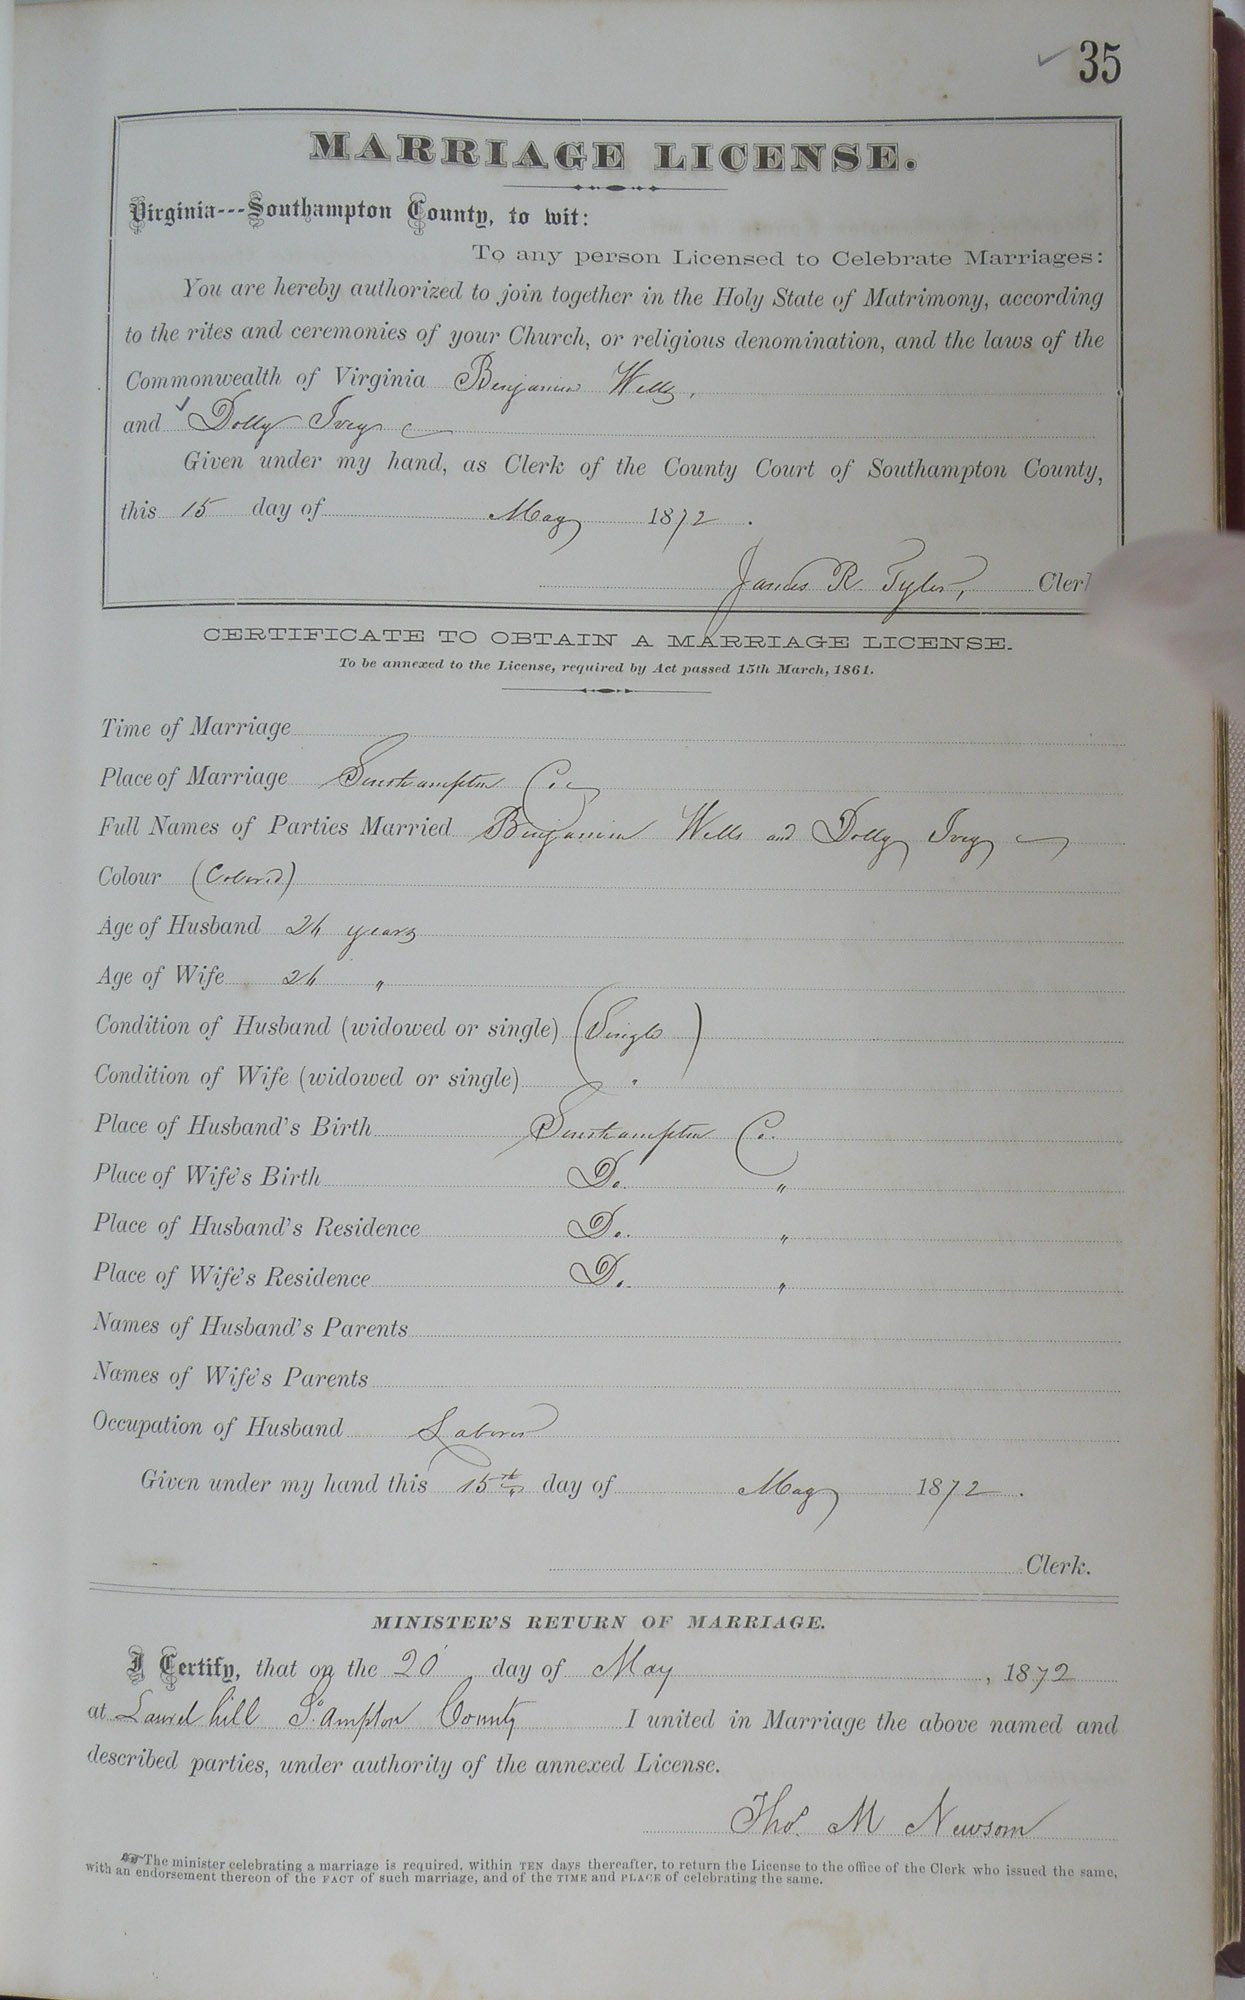 35
MARRIAGE LICENSE.
Virginia---Southampton County, to wit:
To any person Licensed to Celebrate Marriages:
You are hereby authorized to join together in the Holy State of Matrimony, according
to the rites and ceremonies of your Church, or religious denomination, and the laws of the
Commonwealth of Virginia Benjamin Wells,
and Dolly Ivey
Given under my hand, as Clerk of the County Court of Southampton County,
this 15 day of May 1872.
James R. Tyler, Clerk
CERTIFICATE TO OBTAIN A MARRIAGE LICENSE.
To be annexed to the License, required by Act passed 15th March, 1861.
Time of Marriage
Place of Marriage Southampton Co.
Full Names of Parties Married Benjamin Wells and Dolly Ivey
Colour (Colored)
Age of Husband 24 years
Age of Wife 24 "
Condition of Husband (widowed or single) (Single)
Condition of Wife (widowed or single) "
Place of Husband's Birth Southampton Co.
Place of Wife's Birth Do. "
Place of Husband's Residence Do. "
Place of Wife's Residence Do. "
Names of Husband's Parents
Names of Wife's Parents
Occupation of Husband Laborer
Given under my hand this 15th day of May 1872.
Clerk.
MINISTER'S RETURN OF MARRIAGE.
I Certify, that on the 20 day of May, 1872
at Laurel hill So.Ampton County I united in Marriage the above named and
described parties, under authority of the annexed License.
Thos. M Newsom
The minister celebrating a marriage is required, within TEN days thereafter, to return the License to the office of the Clerk who issued the same,
with an endorsement thereon of the FACT of such marriage, and of the TIME and PLACE of celebrating the same.